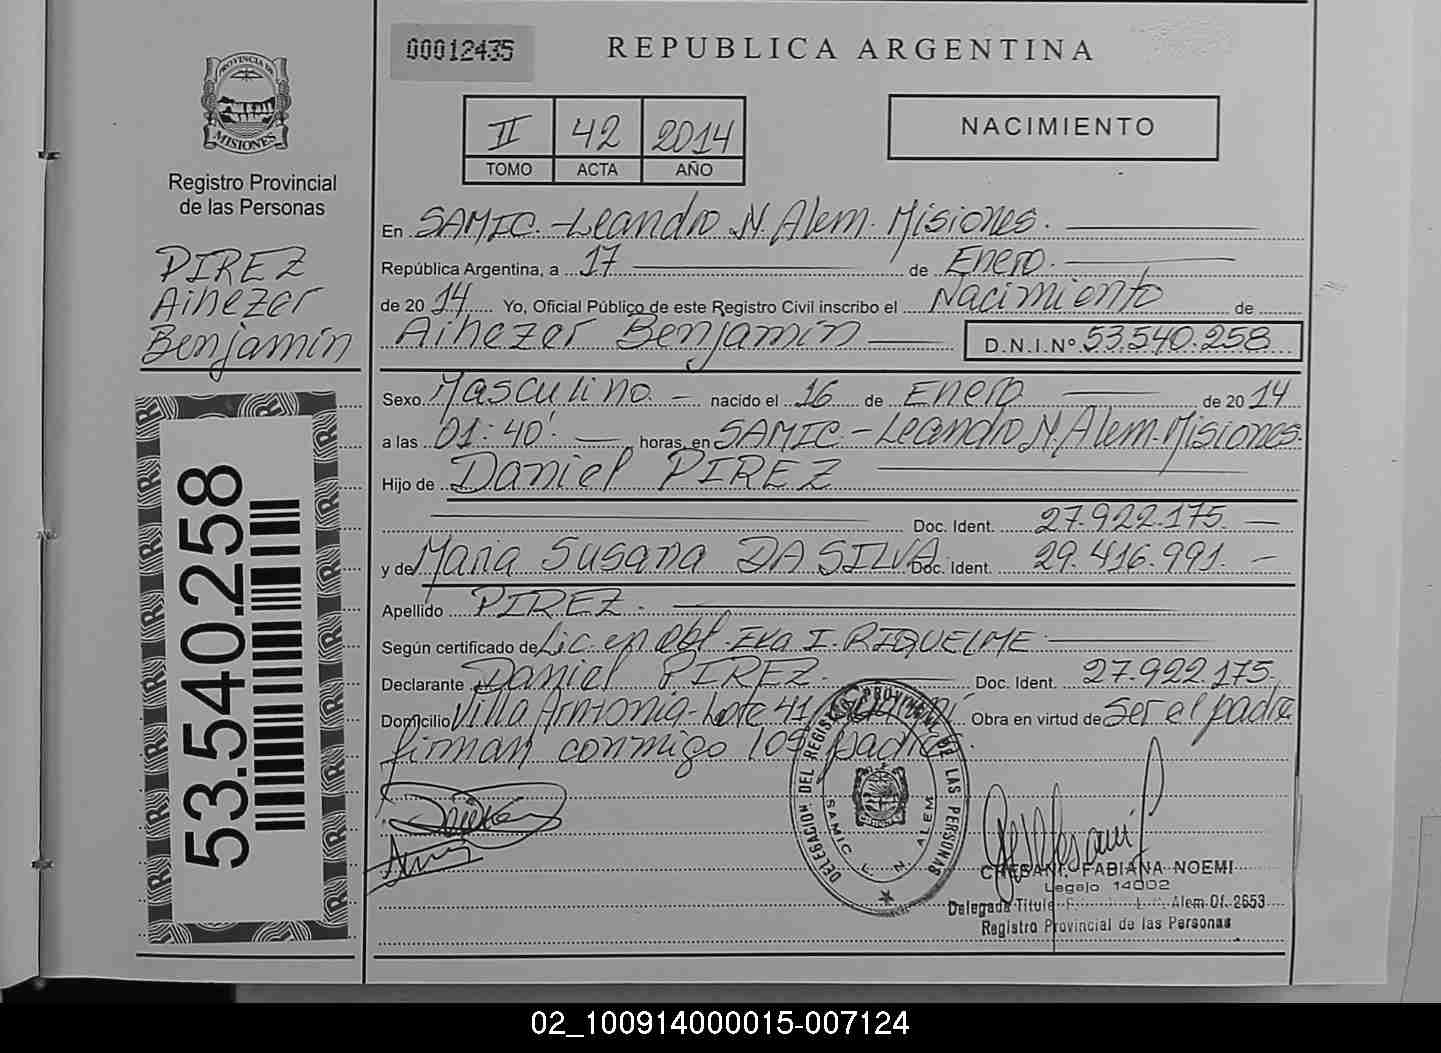 00012435
REPUBLICA ARGENTINA
PROVINCIA DE
MISIONES
Registro Provincial
de las Personas
II 42 2014
TOMO ACTA AÑO
NACIMIENTO
PIREZ
Aihezer
Benjamín
En SAMIC.-Leandro N. Alem. Misiones.
República Argentina, a 17 de Enero.
de 2014 Yo, Oficial Público de este Registro Civil inscribo el Nacimiento de
Aihezer Benjamín D.N.I.Nº 53.540.258
Sexo Masculino. - nacido el 16 de Enero de 2014
a las 01:40'. horas, en SAMIC - Leandro N. Alem. Misiones.
Hijo de Daniel PIREZ
Doc. Ident. 27.922.175. -
y de Maria Susana DA SILVA Doc. Ident. 29.416.991. -
Apellido PIREZ.
Según certificado de Lic. en Obt. Eva I. RIQUELME
Declarante Daniel PIREZ. Doc. Ident. 27.922.175.
Domicilio Villa Antonia - Lote 41 Obra en virtud de Ser el padre
firman conmigo los padres.
53.540.258
DELEGACION DEL REGISTRO PROVINCIAL DE LAS PERSONAS
SAMIC L. N. ALEM
CHESANI, FABIANA NOEMI
Legajo 14002
Delegada Titular Alem Of. 2653
Registro Provincial de las Personas
02_100914000015-007124